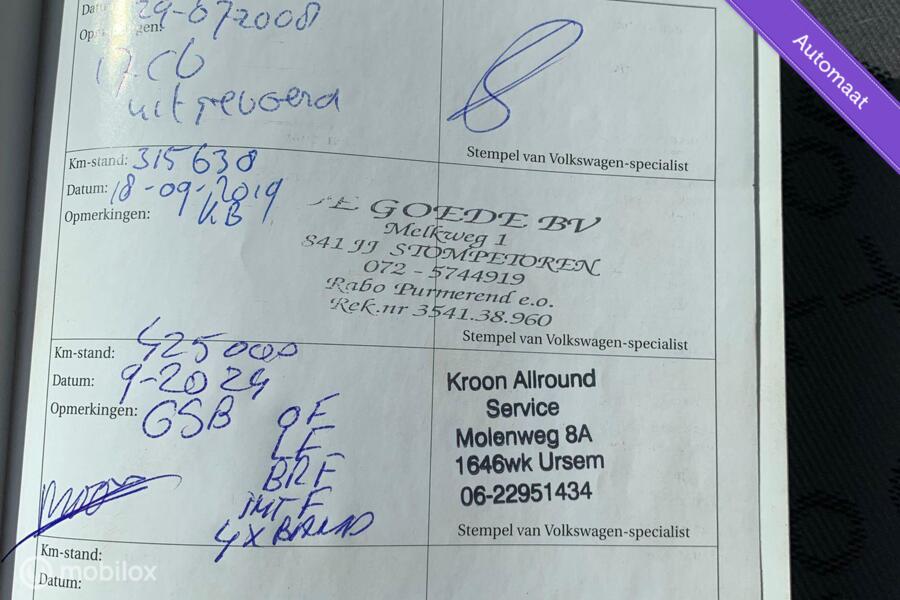 Datum: 29-072008
Opmerkingen:
uitgevoerd
Stempel van Volkswagen-specialist
Km-stand: 315638
Datum: 18-09-2019
Opmerkingen: KB
GOEDE BV
Melkweg 1
841 JJ STOMPETOREN
072 - 5744919
Rabo Purmerend e.o.
Rek.nr 3541.38.960
Stempel van Volkswagen-specialist
Km-stand: 425000
Datum: 9-2024
Opmerkingen: GSB OF
LF
BRF
INT F
4X BRAND
Kroon Allround
Service
Molenweg 8A
1646wk Ursem
06-22951434
Stempel van Volkswagen-specialist
Km-stand:
Datum:
Automaat
mobilox